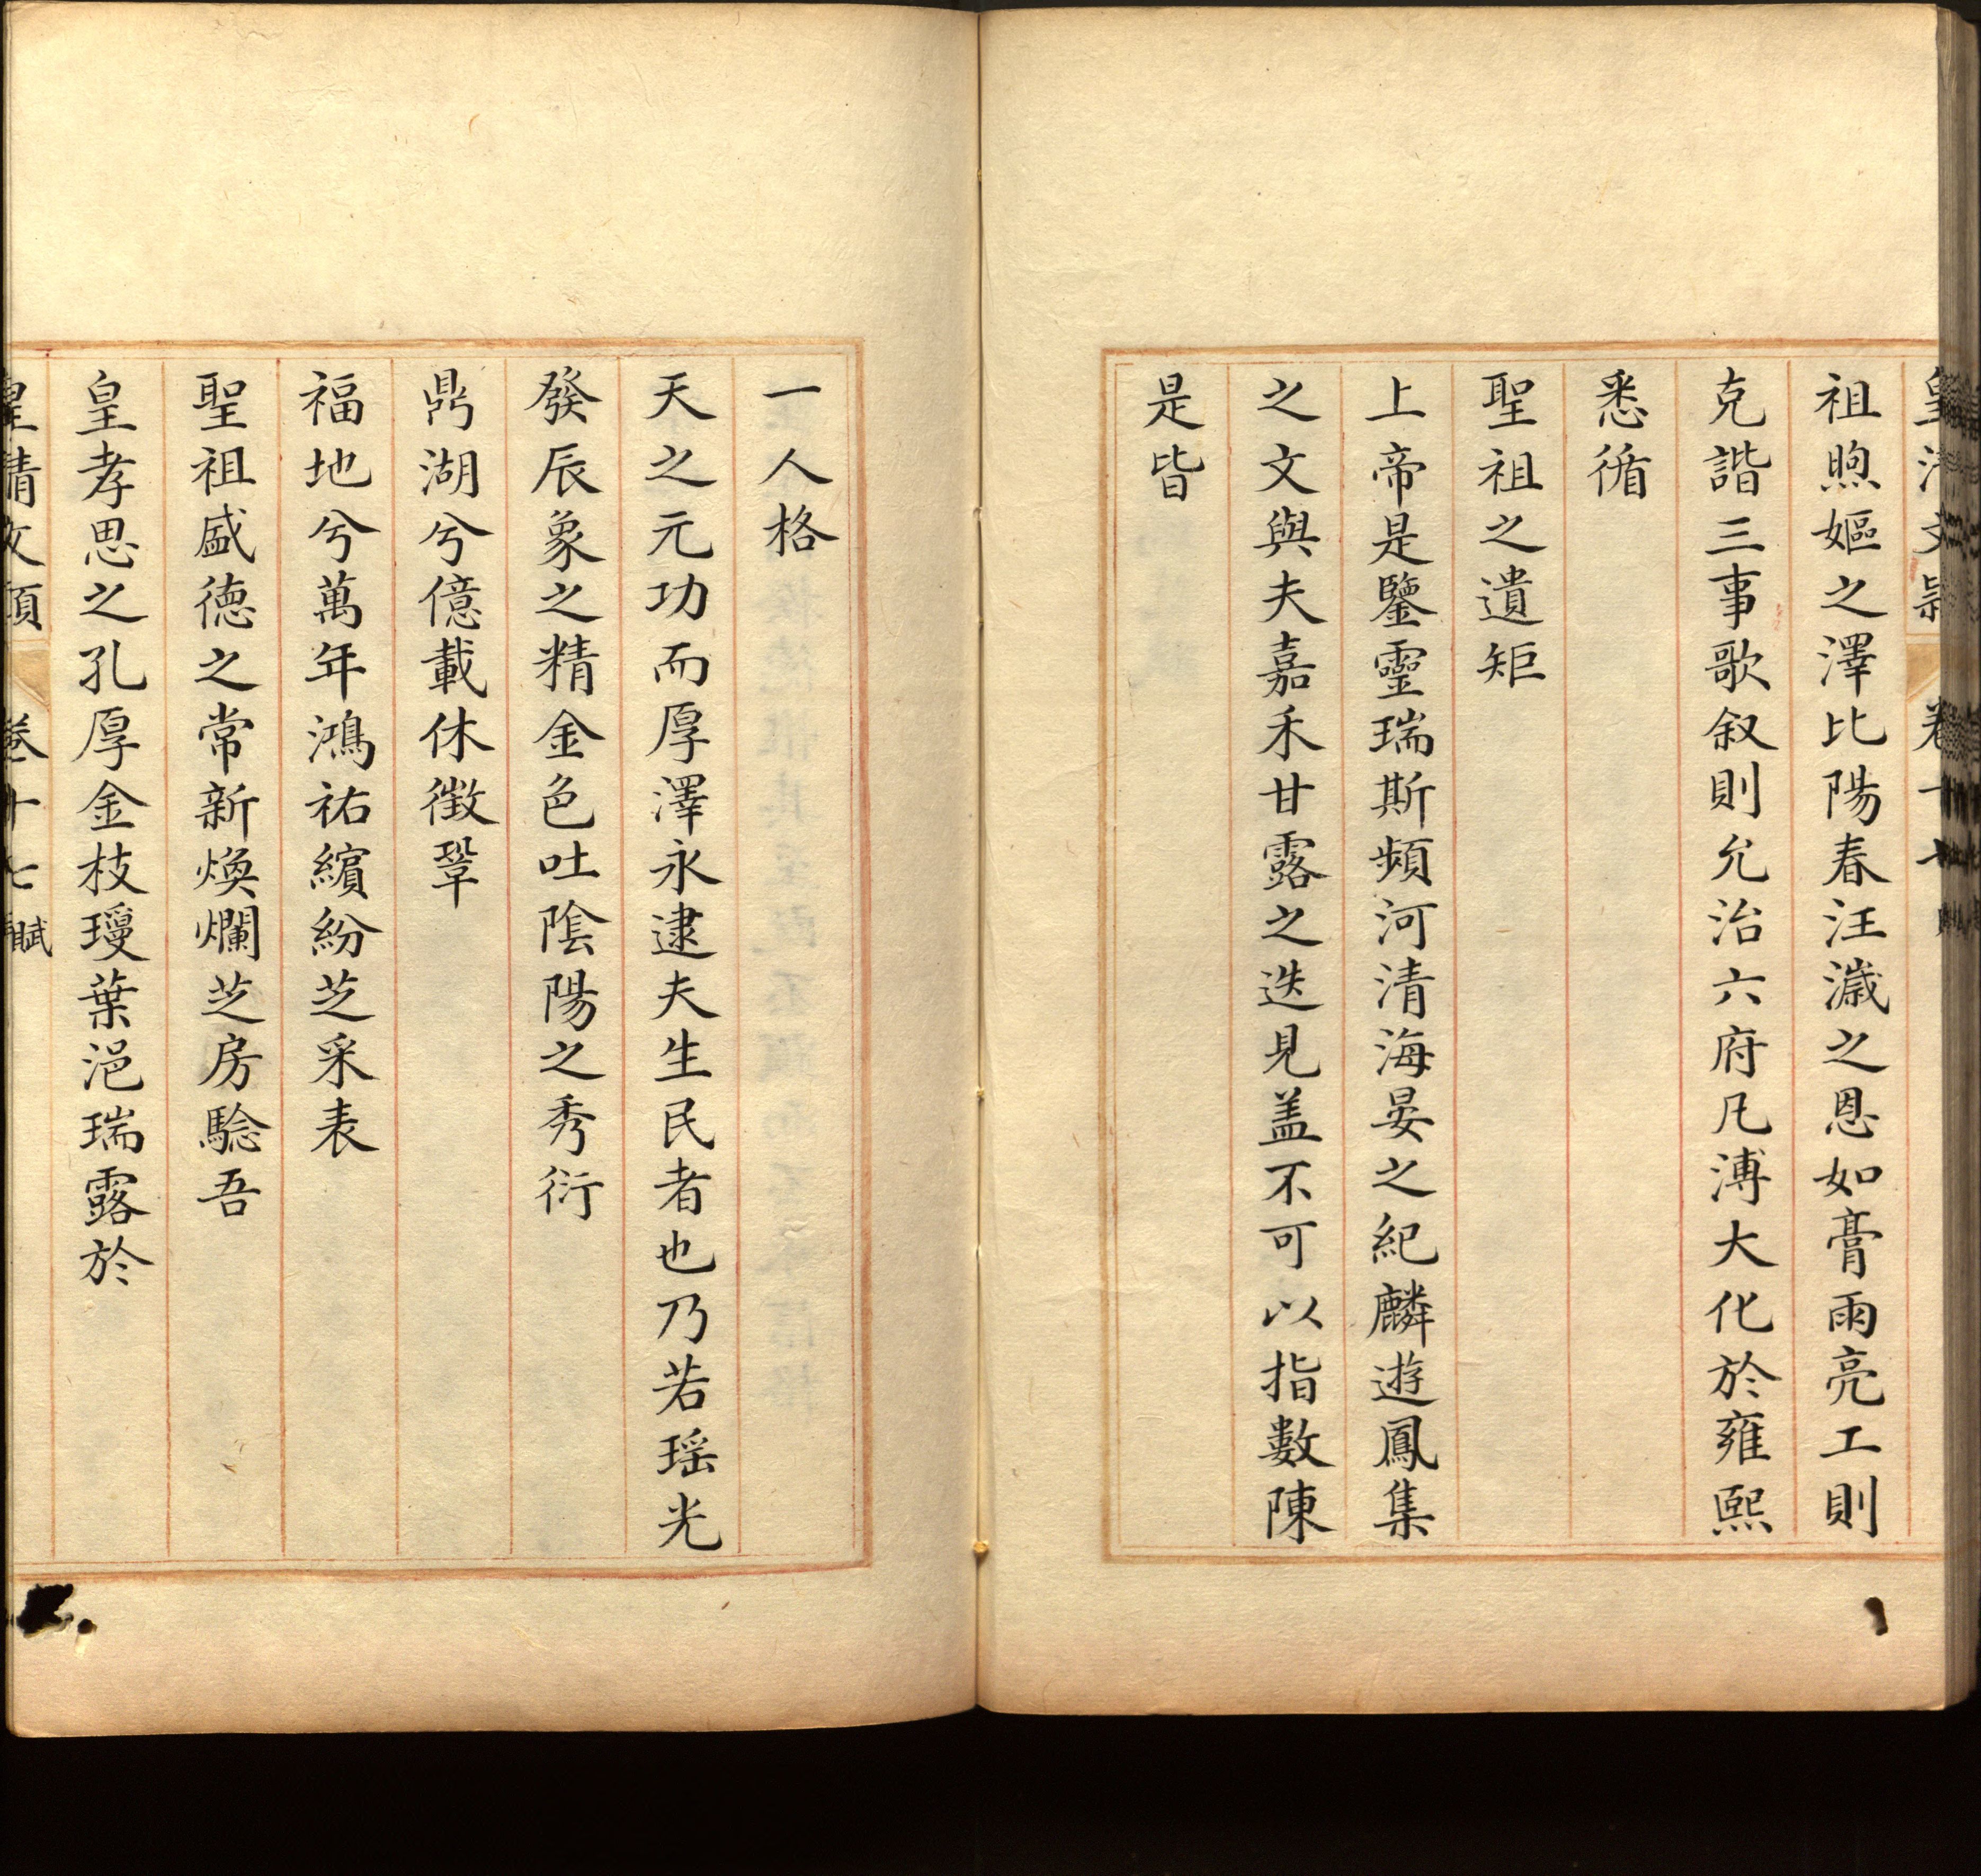 皇清文穎 卷十七
祖煦嫗之澤比陽春汪濊之恩如膏雨亮工則
克諧三事歌叙則允治六府凡溥大化於雍熙
悉循
聖祖之遺矩
上帝是鑒靈瑞斯頻河清海晏之紀麟遊鳳集
之文與夫嘉禾甘露之迭見盖不可以指數陳
是皆
一人格
天之元功而厚澤永逮夫生民者也乃若瑶光
發辰象之精金色吐陰陽之秀衍
鼎湖兮億載休徴鞏
福地兮萬年鴻祐繽紛芝采表
聖祖盛德之常新煥爛芝房驗吾
皇孝思之孔厚金枝璦葉浥瑞露於
皇清文穎 卷十七 賦